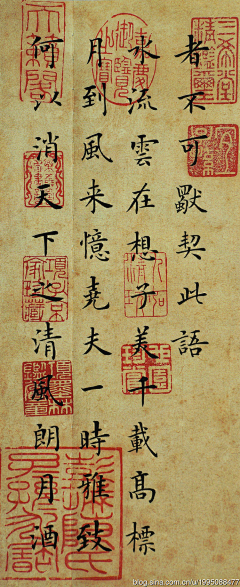 者不可默契此語
水流雲在想子美千載高標
月到風来憶堯夫一時雅致
何以消天下之清風朗月酒
三希堂精鑑璽
blog.sina.com.cn/u/1995088877